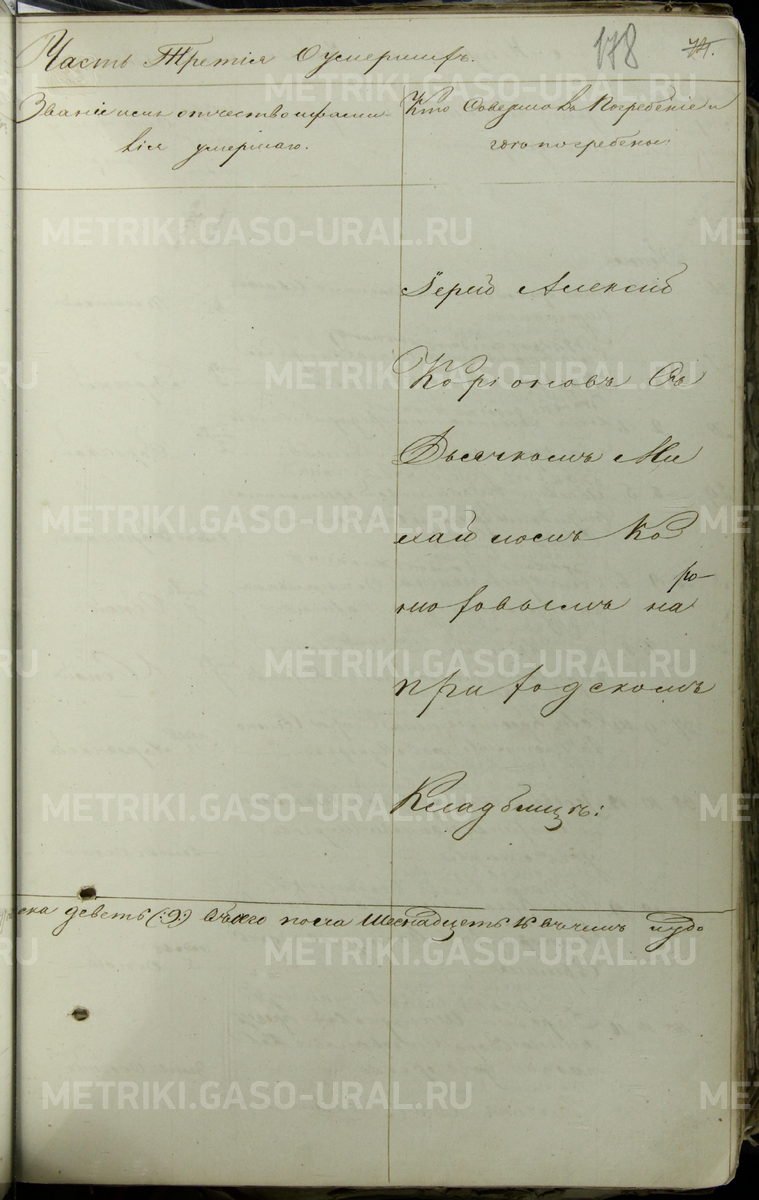 178
Часть Третія О умершихъ.
Званіе имя отчество и фами
лія умершаго.
Кто Совершалъ Погребеніе и
гдѣ погребены:
Іерей Алексій
Коріоновъ Съ
Дьячкомъ Ми
хайломъ Ко
ро
ноховымъ на
приходскомъ
Кладбищѣ:
деветь (:9:) Обоего пола Шеснадцеть 16
METRIKI.GASO-URAL.RU